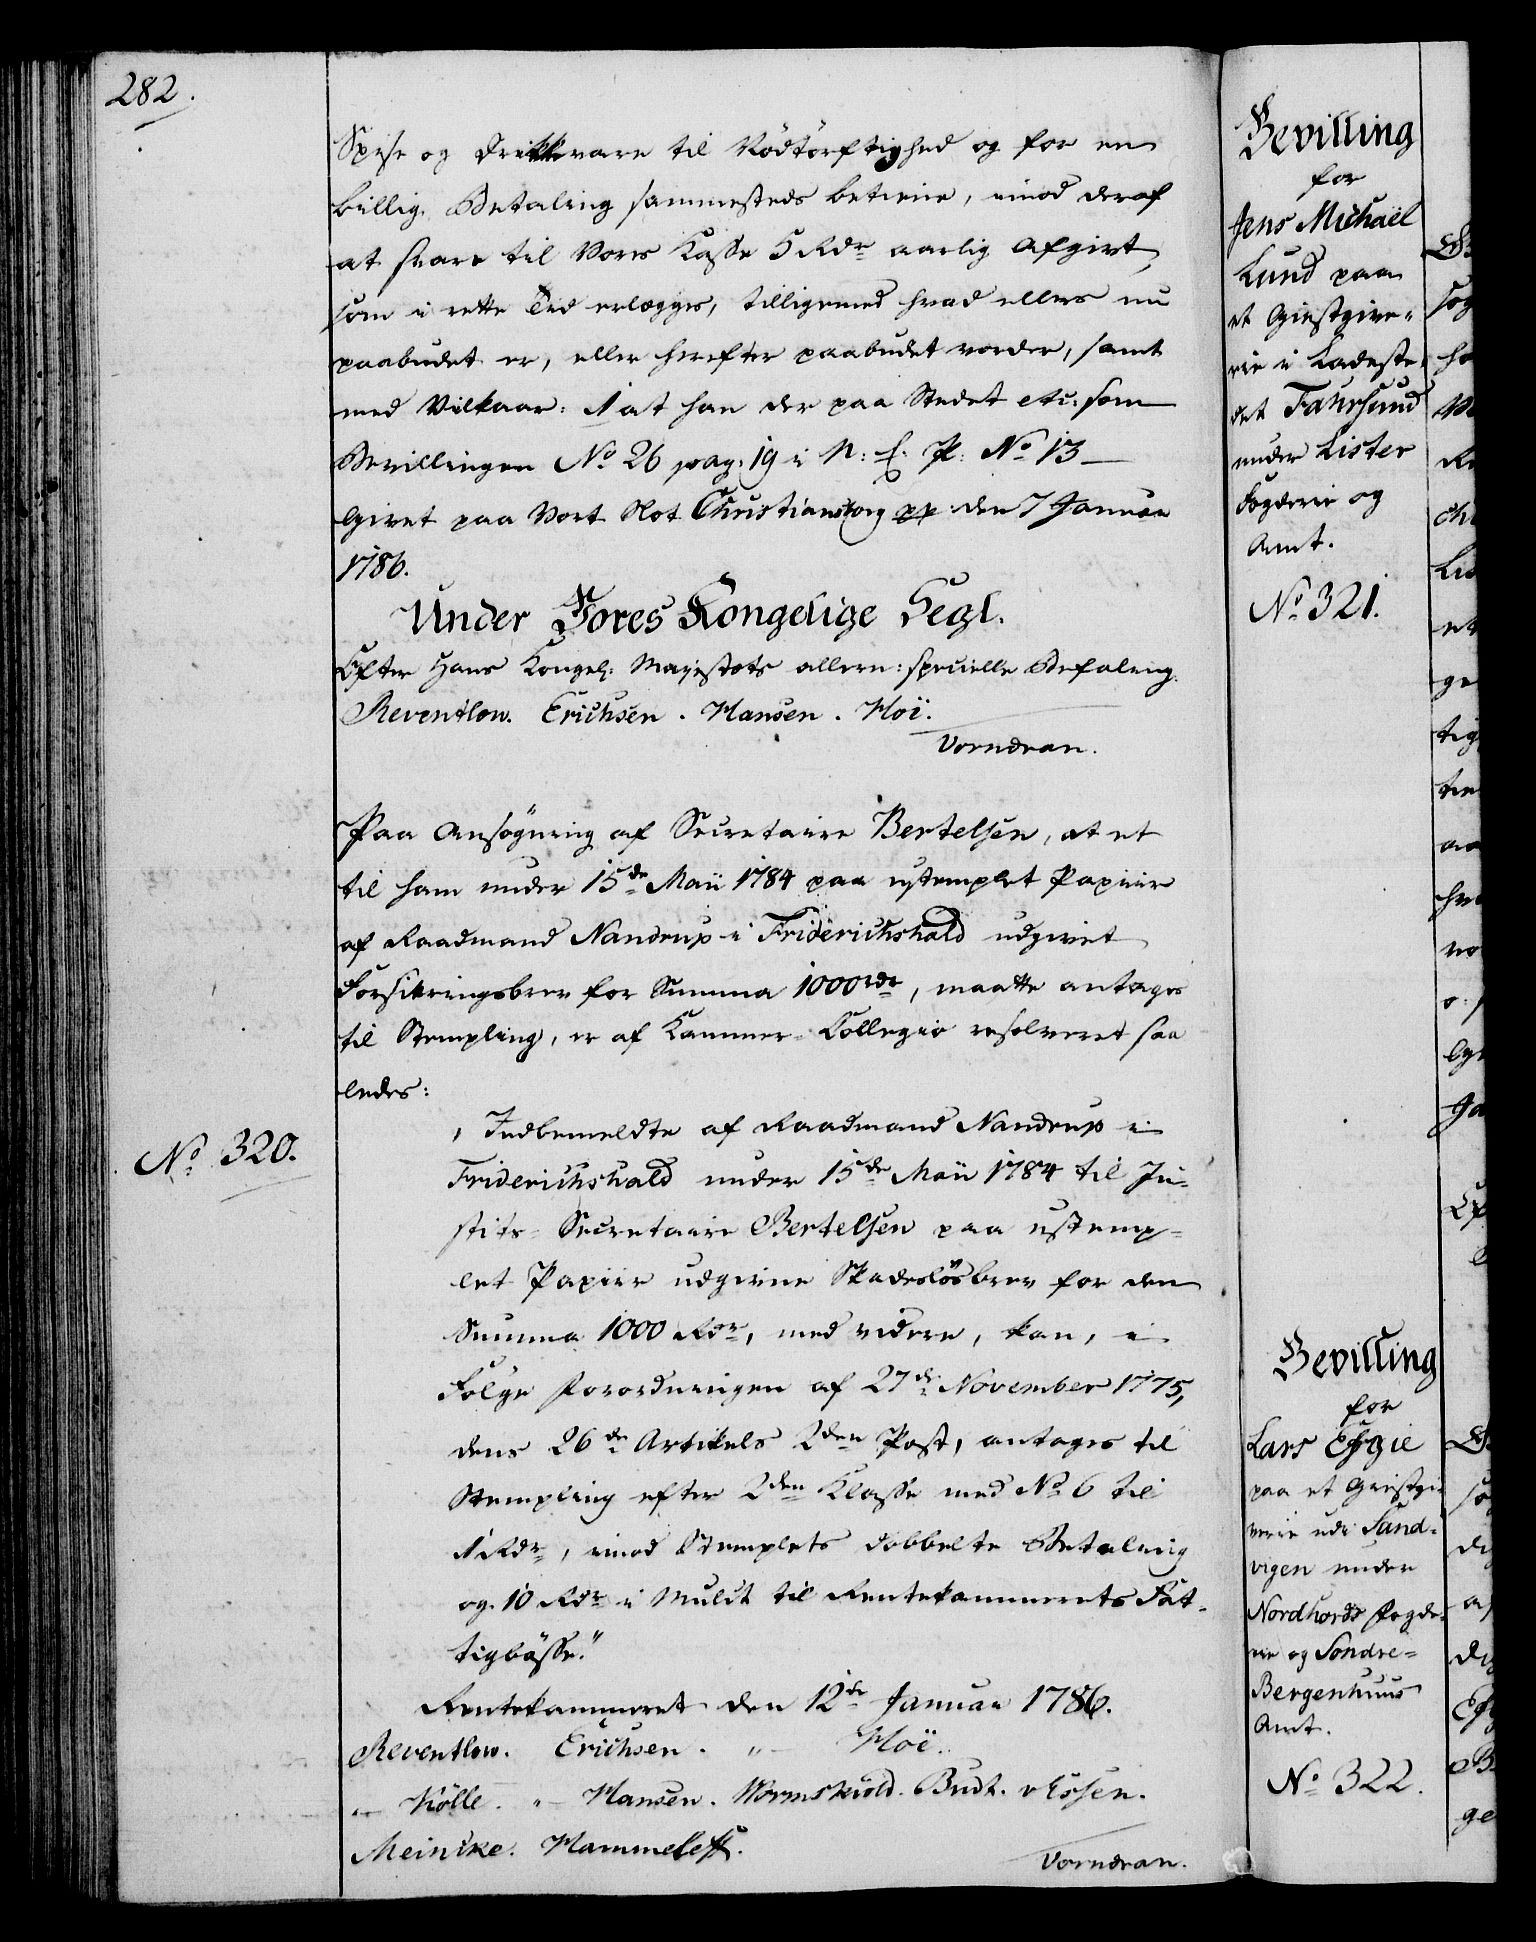 282.
Spise og Drikkevare til Nødtørftighed og for en
billig Betaling sammesteds betiene, imod deraf
at svare til Vores Kasse 5 Rdr aarlig Afgivt,
som i rette Tid erlægges, tilligemed hvad ellers nu
paabudet er, eller herefter paabudet vorder, samt
med Vilkaar: 1 at han der paa Stedet etc: som
Bevillingen No 26 pag: 19 i N: C: P: No 13
Givet paa Vort Slot Christiansborg pp den 7 Januar
1786.
Under Vores Kongelige Segl.
Efter Hans Kongel: Majestæts allern: specielle Befaling.
Reventlow. Erichsen. Hansen. Hoë.
Vorndran.
Paa Ansøgning af Secretaire Bertelsen, at et
til ham under 15de Maii 1784 paa ustemplet Papiir
af Raadmand Nandrup i Friderichshald udgivet
Forsikringsbrev for Summa 1000rdr, maatte antages
til Stempling, er af Kammer-Collegio resolveret saa
ledes:
No 320.
, Indbemeldte af Raadmand Nandrup i
Friderichshald under 15de Maii 1784 til Ju-
stits-Secretaire Bertelsen paa ustemp-
let Papiir udgivne Skadesløsbrev for den
Summa 1000 Rdr, med videre, kan, i
Følge Forordningen af 27de November 1775,
dens 26de Artikels 2den Post, antages til
Stempling efter 2den Klasse med No 6 til
1 Rdr, imod Stemplets dobbelte Betaling
og 10 Rdr i Mulct til Rentekammerets Fat-
tigbøsse."
Rentekammeret den 12te Januar 1786.
Reventlow. Erichsen. " Hoë.
" Kölle. " Hansen. Wormskiold. Budt. v Essen.
Meincke. Hammeleff.
Vorndran.
Bevilling
for
Jens Michaël
Lund paa
et Giestgive-
rie i Ladeste-
det Fahrsund
under Lister
Fogderie og
Amt.
No 321.
Bevilling
for
Lars Efgie
paa et Giestgi-
verie udi Sand-
vigen under
Nordhords Fogde-
rie og Søndre-
Bergenhuus
Amt.
No 322.